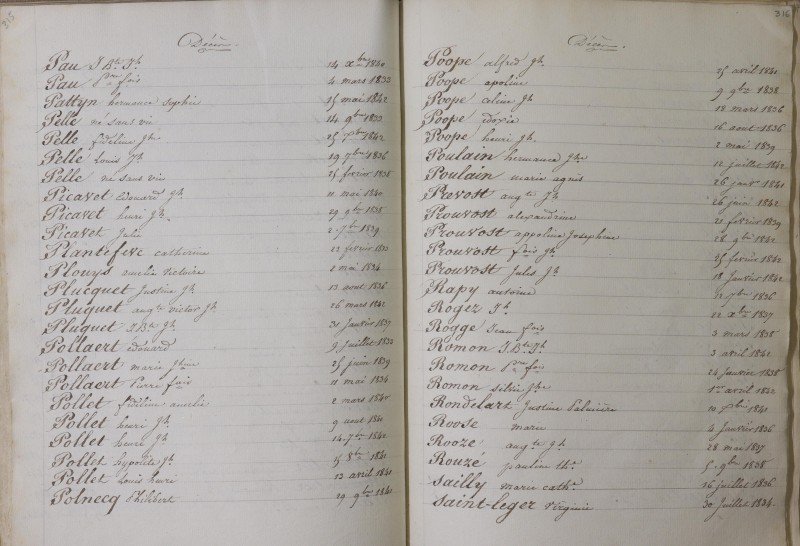 315
Décès.
Pau J. Bte Jh 14 Xbre 1840
Pau Pre fois 4 mars 1833
Pattyn hermance Sophie 15 mai 1842
Pelle né sans vie 14 9bre 1833
Pelle fidéline Jhne 25 1842
Pelle Louis Jh 19 7bre 1836
Pelle né sans vie 21 fevrier 1838
Picavet édouard Jh 11 mai 1840
Picavet henri Jh 29 9bre 1838
Picavet Julie 2 7bre 1839
Plantefeve catherine 22 fevrier
Plouys amelie victoire 2 mai 1834
Plucquet Justine Jh 13 aout 1836
Pluquet augte victor Jh 26 mars 1842
Pluquet J. Bte Jh 30 Janvier 1837
Pollaert édouard 9 Juillet 1833
Pollaert marie Jhine 25 juin 1839
Pollaert Pierre fois 11 mai 1834
Pollet fidéline amelie 2 mars 1840
Pollet henri Jh 9 aout 1841
Pollet henri Jh 14 7bre 1842
Pollet hypolite Jh 15 8bre 1841
Pollet Louis henri 13 avril 1841
Polnecq Philibert 19 9bre 1841
316
Décès.
Poope alfred Jh 25 avril 1841
Poope apoline 9 9bre 1838
Poope celine Jh 18 mars 1836
Poope 16 aout 1836
Poope henri Jh 2 mai 1839
Poulain hermance Jhe 12 juillet 1842
Poulain marie agnis 26 janv. 1841
Prevost augte Jh 26 juin 1842
Prouvost alexandrine 21 fevrier 1839
Prouvost appoline Josephine 28 9bre 1842
Prouvost fois Jh 25 fevrier 1842
Prouvost Jules Jh 18 Janvier 1842
Rapy antoine 22 7bre 1836
Roger Jh 22 Xbre 1837
Rogge Jean fois 3 mars 1838
Romon J. Bte Jh 3 avril 1842
Romon Pre fois 24 Janvier 1838
Romon silvie Jhe 1er avril 1842
Rondelart Justine Palmire 10 1841
Roose marie 4 Janvier 1836
Rooze augte Jh 28 mai 1837
Rouzé pauline thse 5 9bre 1838
Sailly marie cathe 16 juillet 1836
Saint-leger Virginie 30 Juillet 1834.